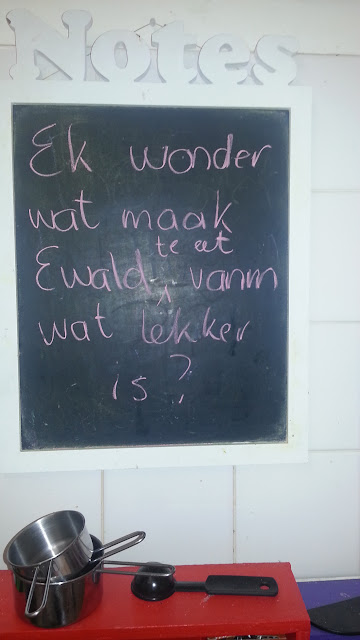 Notes
Ek wonder
wat maak
te eet
Ewald vanm
wat lekker
is?